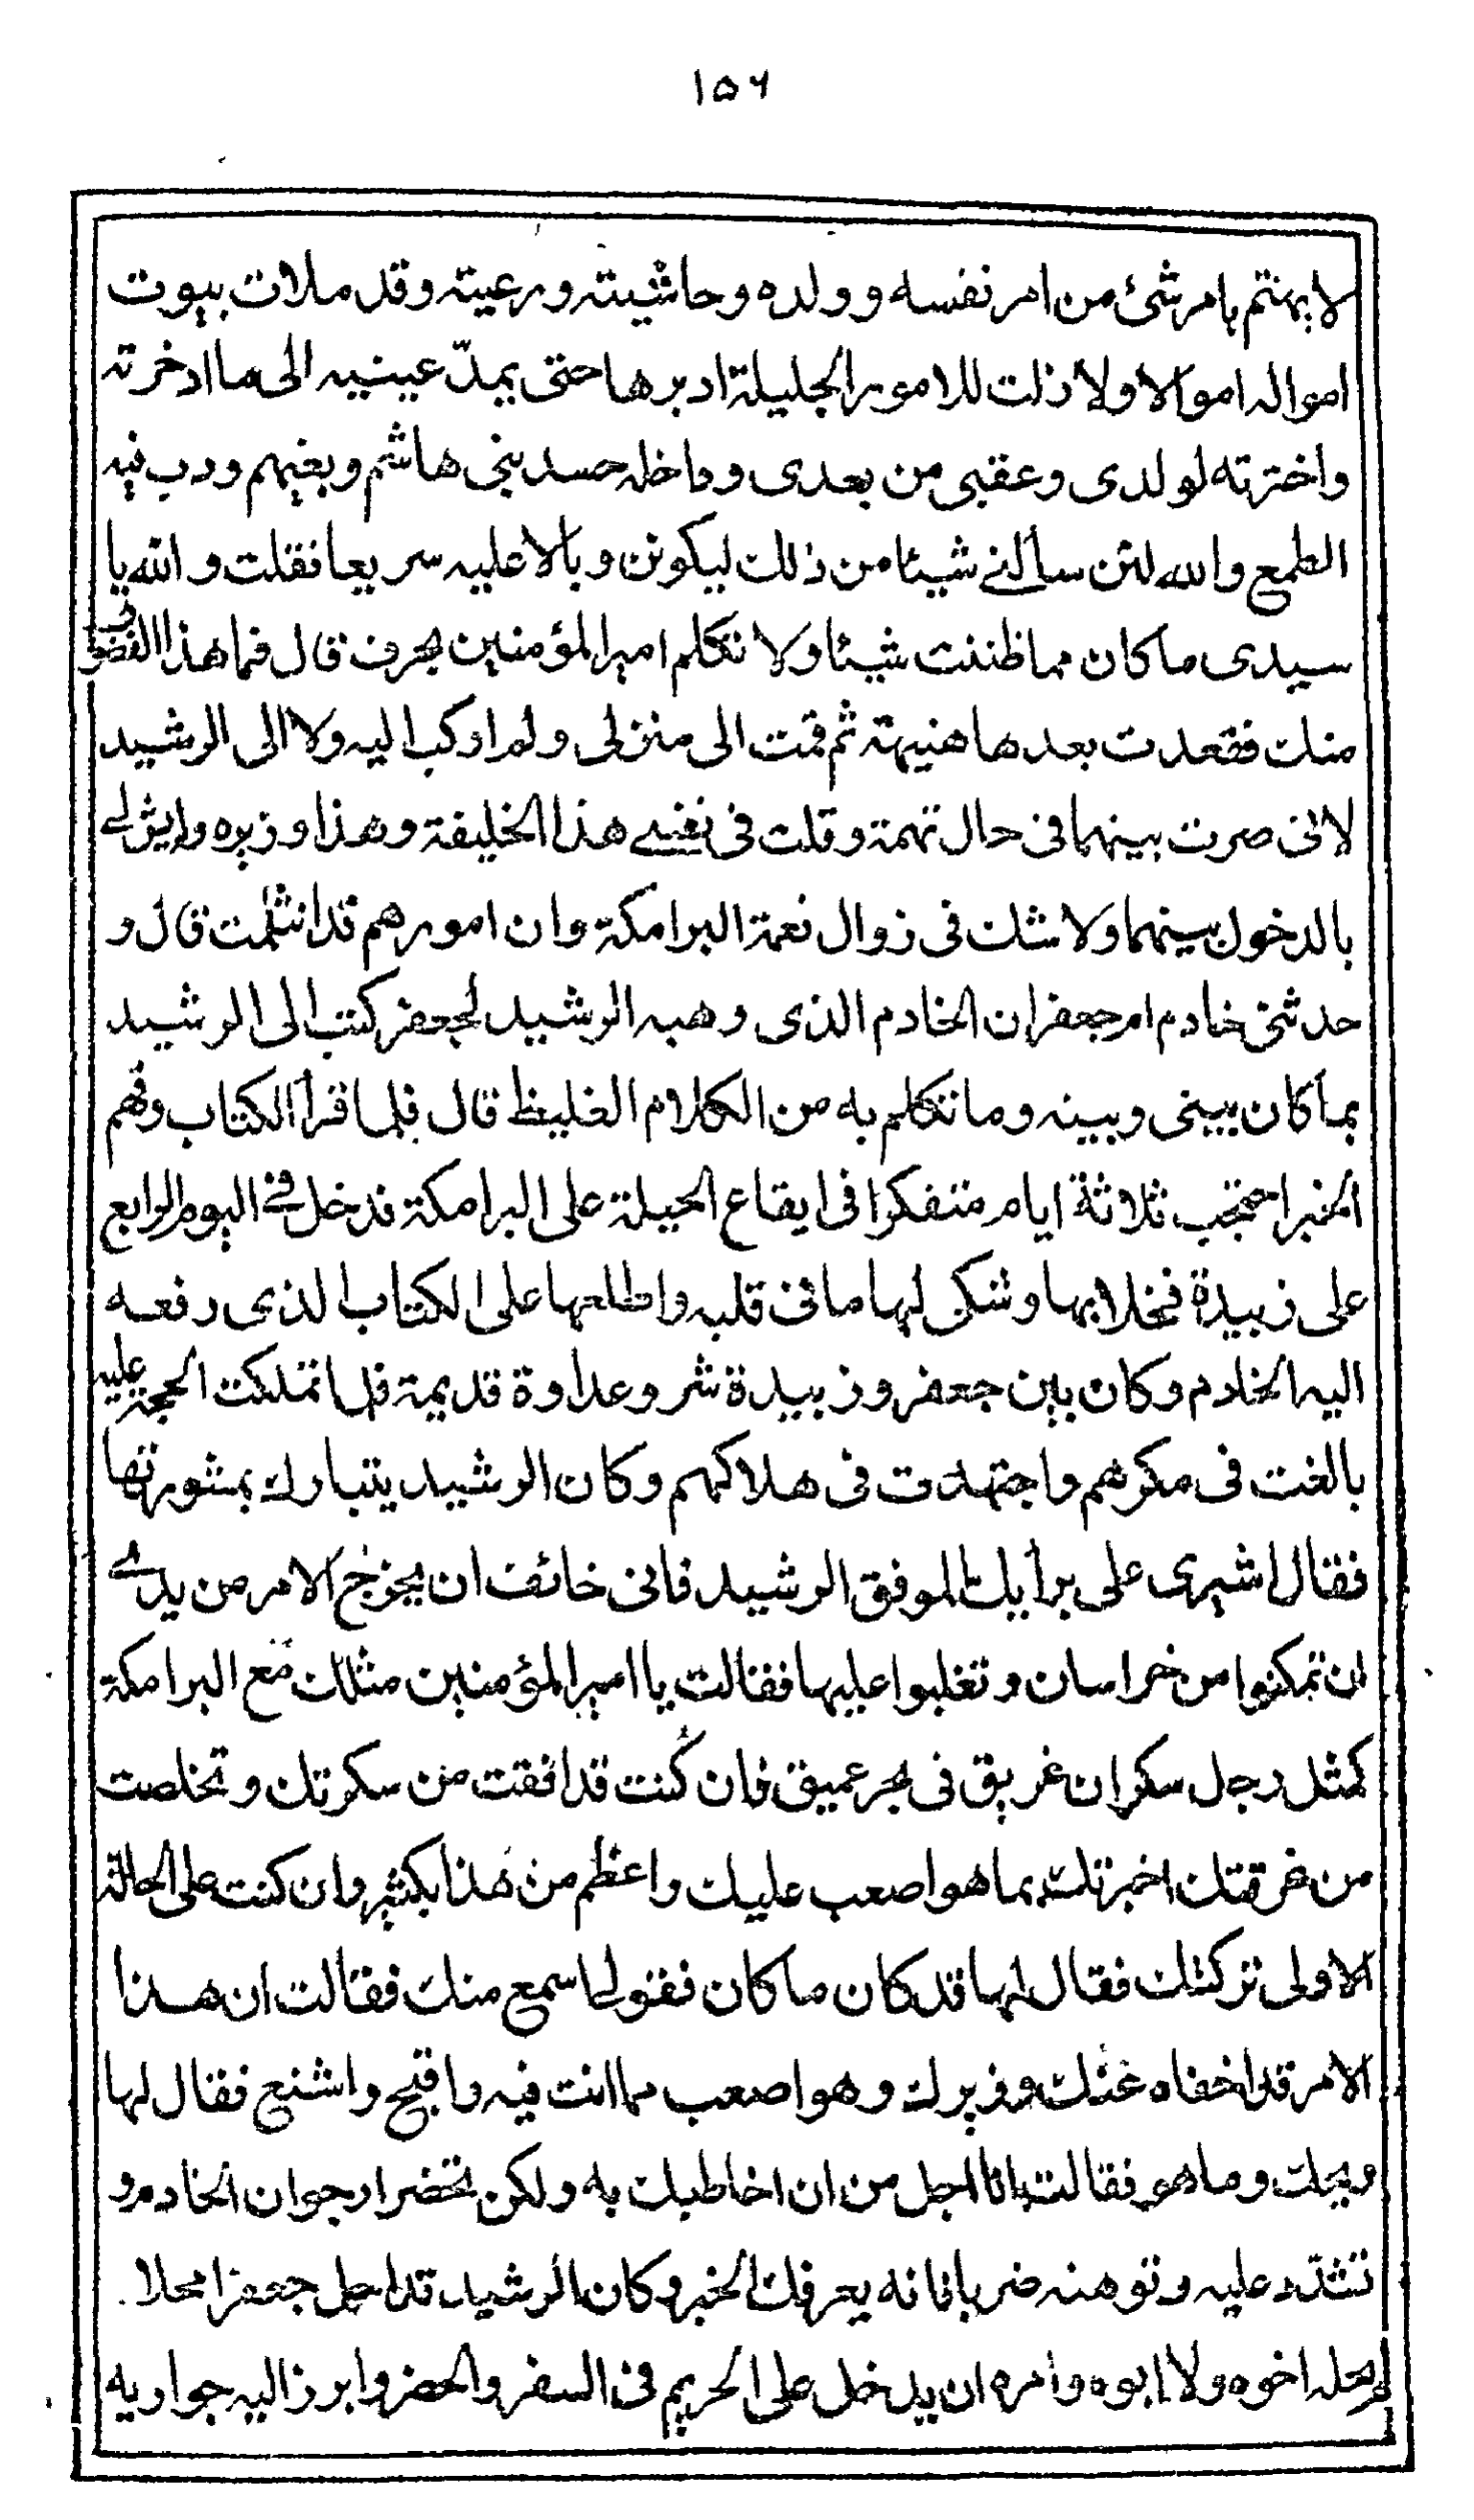 ١٥٦
لا يهتم بامر شئ من امر نفسه و ولده و حاشيته ورعيته وقد ملات بيوت
امواله اموالا ولا زلت للامور الجليلة ادبرها حتى يمدّ عينيه الى ما ادخرته
واخترته لولدى وعقبى من بعدى وداخله حسد بنى هاشم وبغيهم ودب فيه
الطمع والله لئن سألنى شيئا من ذلك ليكونن وبالا عليه سريعا فقلت والله يا
سيدى ما كان مما ظننت شيئا ولا تكلم امير المؤمنين بحرف قال فما هذا الفضول
منك فقعدت بعدها هنيهة ثم قمت الى منزلى ولم اركب اليه ولا الى الرشيد
لانى صرت بينهما فى حال تهمة وقلت فى نفسى هذا الخليفة وهذا وزيره وايش لى
بالدخول بينهما ولا شك فى زوال نعمة البرامكة وان امورهم قد انثلمت قال و
حدثنى خادم ام جعفر ان الخادم الذى وهبه الرشيد لجعفر كتب الى الرشيد
بما كان بينى وبينه وما تكلم به من الكلام الغليظ قال فلما قرأ الكتاب وفهم
الخبر احتجب ثلاثة ايام متفكرا فى ايقاع الحيلة على البرامكة فدخل فى اليوم الرابع
على زبيدة فخلا بها وشكى لها ما فى قلبه واطلعها على الكتاب الذى رفعه
اليه الخادم وكان بين جعفر وزبيدة شر وعداوة قديمة فلما تملكت الحجة عليه
بالغت فى مكرهم واجتهدت فى هلاكهم وكان الرشيد يتبارك بمشورتها
فقال اشيرى على برأيك الموفق الرشيد فانى خائف ان يخرج الامر من يدى
ان تمكنوا من خراسان وتغلبوا عليها فقالت يا امير المؤمنين مثلك مع البرامكة
كمثل رجل سكران غريق فى بحر عميق فان كنت قد افقت من سكرتك وتخلصت
من غرقتك اخبرتك بما هو اصعب عليك واعظم من هذا بكثير وان كنت على الحالة
الاولى تركتك فقال لها قد كان ما كان فقولى اسمع منك فقالت ان هذا
الامر قد اخفاه عنك وزيرك وهو اصعب مما انت فيه واقبح واشنع فقال لها
ويحك وما هو فقالت انا اجل من ان اخاطبك به ولكن تحضر ارجوان الخادم و
تشدّد عليه وتوهنه ضربا فانه يعرفك الخبر وكان الرشيد قد احل جعفرا محلا
لم يحله اخوه ولا ابوه وامره ان يدخل على الحريم فى السفر والحضر وابرز اليه جواريه